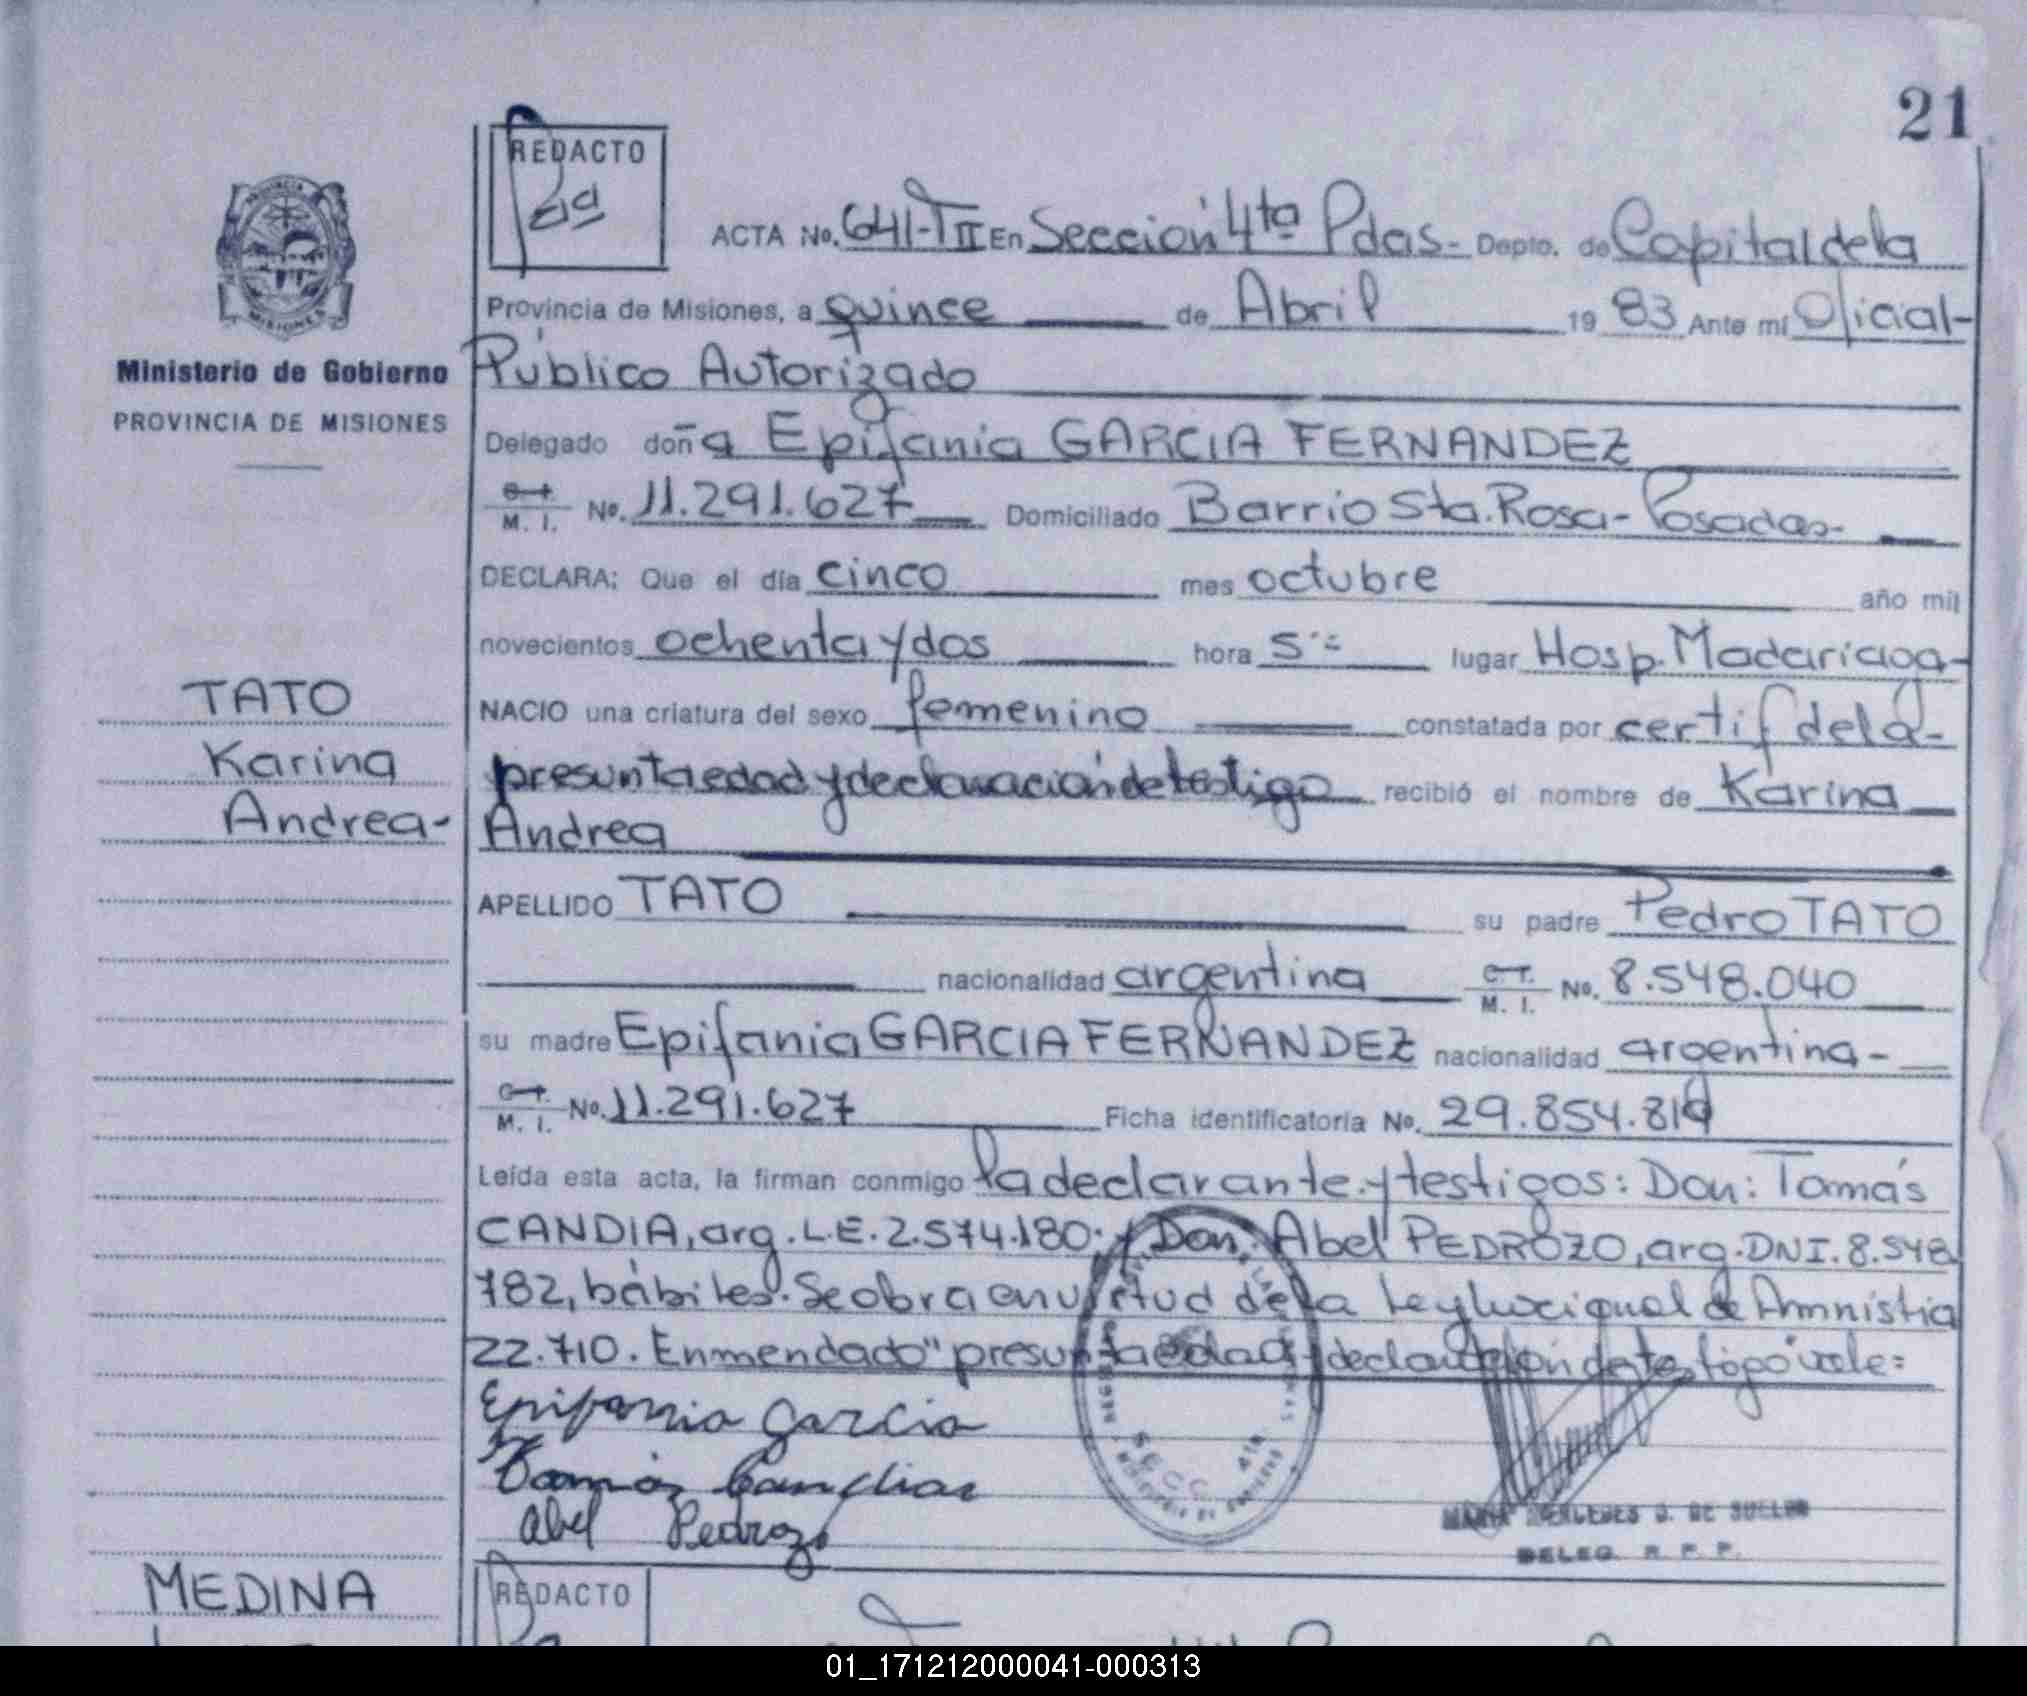 21
REDACTO
ACTA No. 641-TII En Sección 4ta Pdas- Depto. de Capital de la
Provincia de Misiones, a quince de Abril 1983 Ante mi Oficial-
Público Autorizado
Ministerio de Gobierno
PROVINCIA DE MISIONES
Delegado doña Epifania GARCIA FERNANDEZ
M. I. No. 11.291.627 Domiciliado Barrio Sta. Rosa- Posadas-
DECLARA: Que el día cinco mes octubre año mil
novecientos ochenta y dos hora 5 lugar Hosp. Madariaga-
NACIO una criatura del sexo femenino constatada por certif de la-
presunta edad y declaración de testigo recibió el nombre de Karina
Andrea
TATO
Karina
Andrea-
APELLIDO TATO su padre Pedro TATO
nacionalidad argentina C.I. M. I. No. 8.548.040
su madre Epifania GARCIA FERNANDEZ nacionalidad argentina-
C.I. M. I. No. 11.291.627 Ficha identificatoria No. 29.854.819
Leída esta acta, la firman conmigo la declarante y testigos: Don: Tomás
CANDIA, arg. L.E. 2.574.180. y Don. Abel PEDROZO, arg. DNI. 8.548
782, hábiles. Se obra en virtud de la Ley Nacional de Amnistia
22.710. Enmendado "presunta edad y declaración de testigo" vale:
Epifania Garcia
Tomás Candia
Abel Pedrozo
SECC. 4ta
DELEG. R. P. P.
MEDINA
REDACTO
01_171212000041-000313